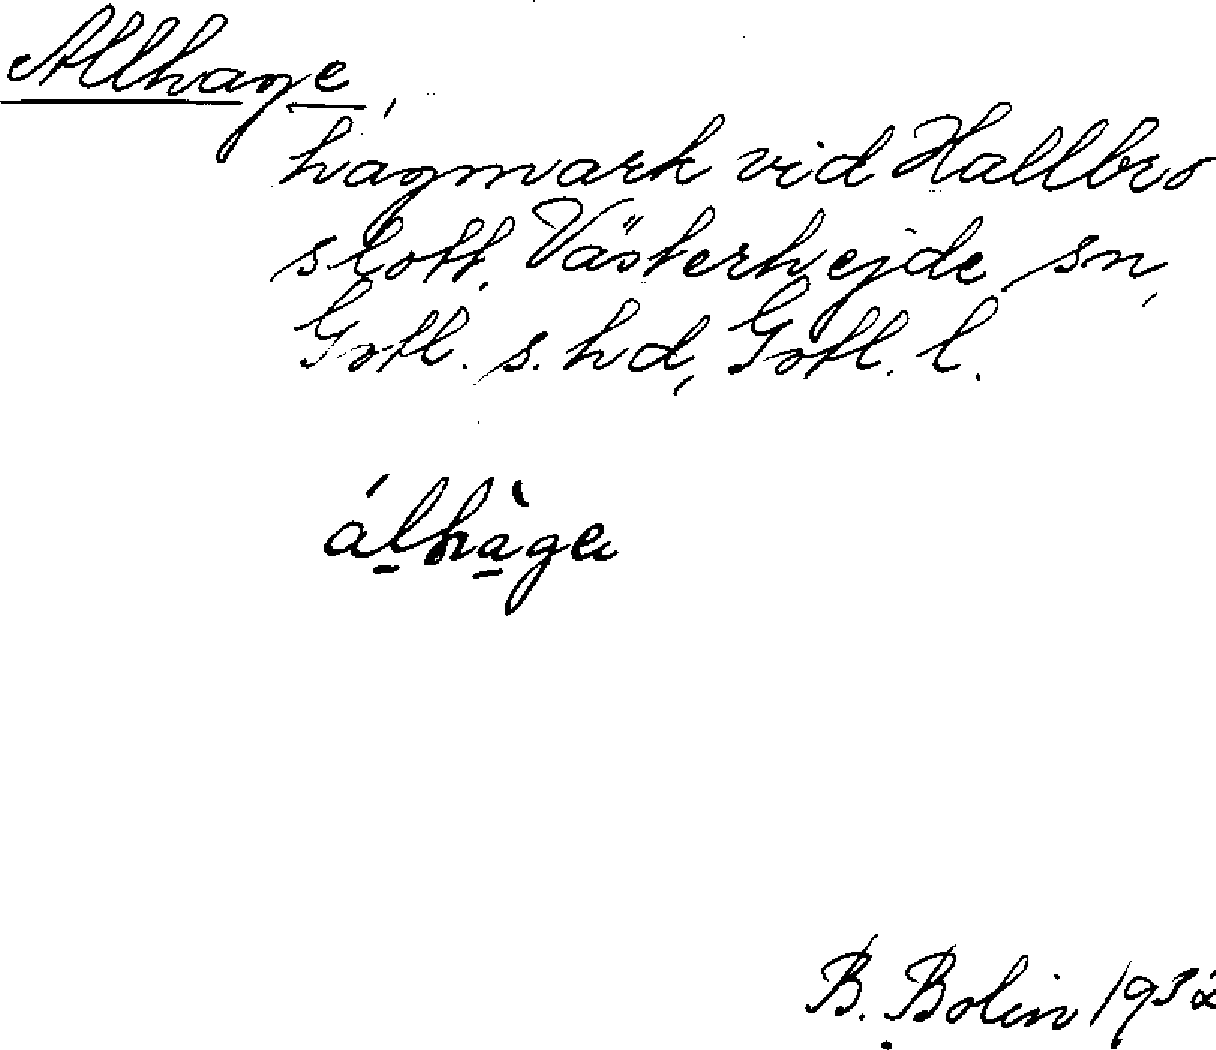 Allhage,
hagmark vid Hallbro
slott, Västerhejde sn,
Gotl. s. hd, Gotl. l.
álhàgen
B. Bolin 1932